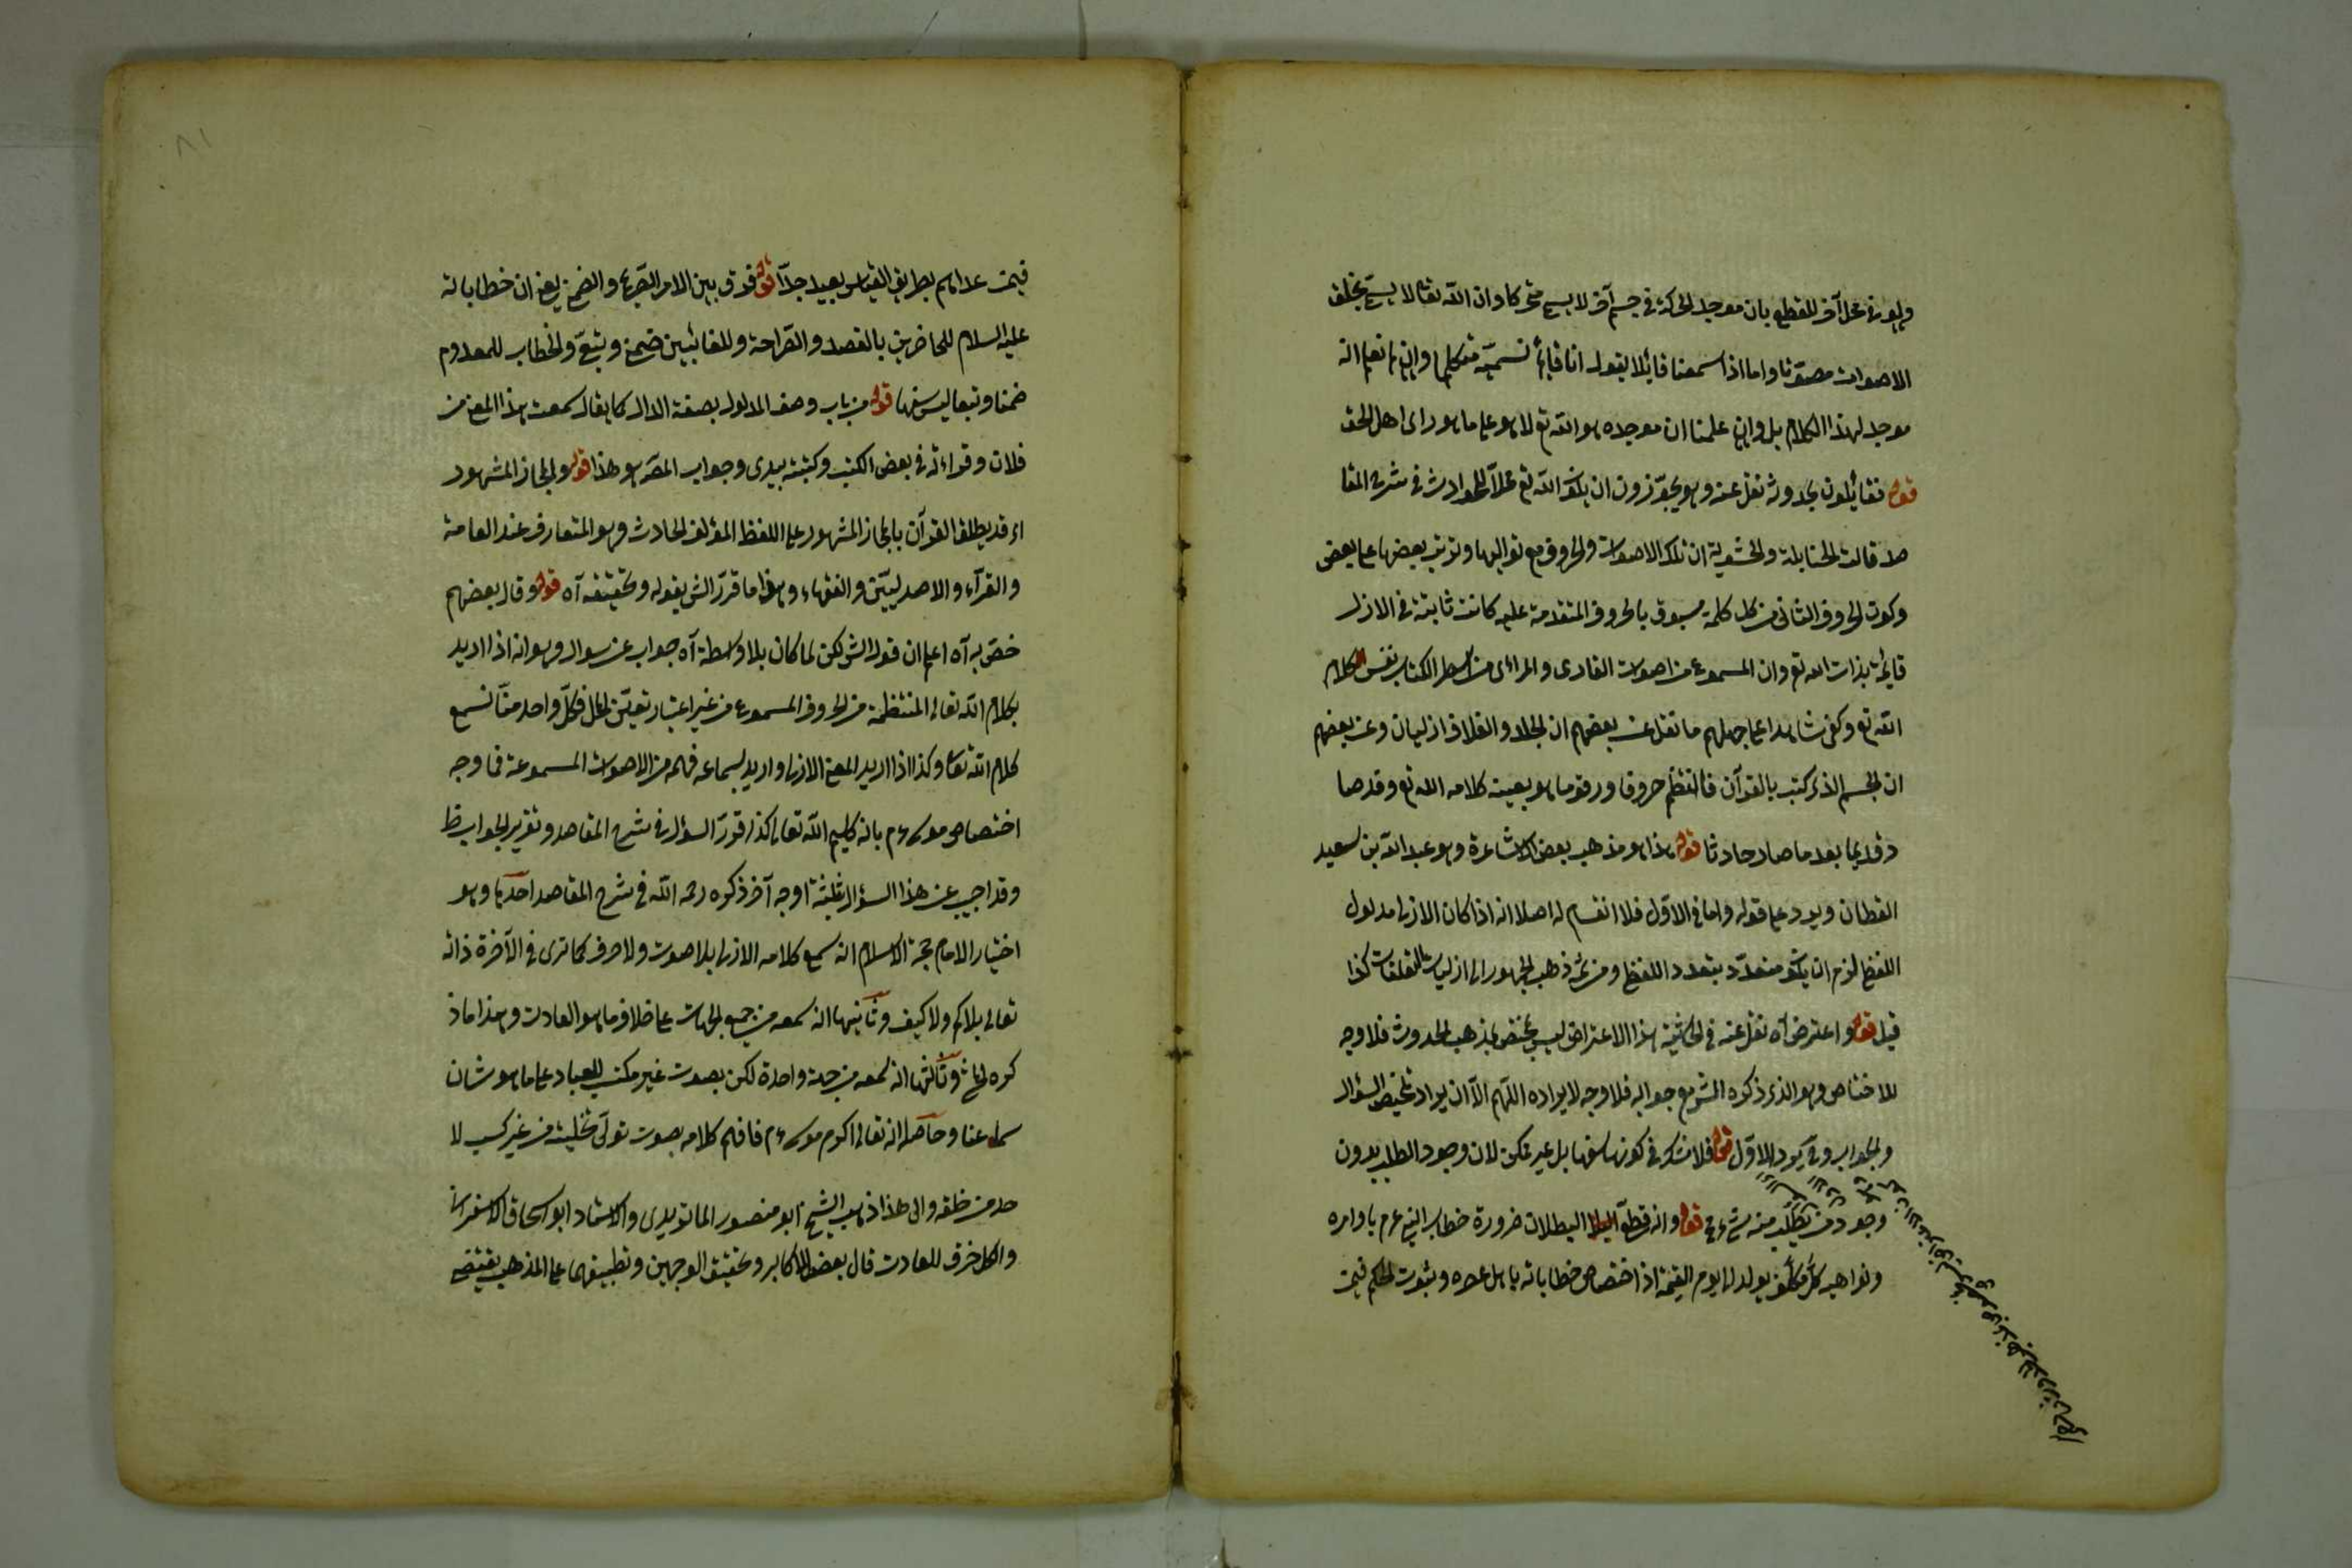 ولو في محل آخر للقطع بان موجد الحركة في جسم آخر لا يسمى متحركا وان الله تعالى لا يسمى بخلق
الاصوات مصوتا واما اذا سمعنا قائلا يقول انا قائم نسميه متكلما وان لم نعلم انه
موجد لهذا الكلام بل وان علمنا ان موجده هو الله تع لا هو على ما هو راى اهل الحق
قوله فقائلون بحدوثه نقل عنه وهو يجوزون ان يكون الله تع محلا للحوادث في شرح المقا
صد قالت الحنابلة والحشوية ان تلك الاصوات والحروف مع تواليها وترتب بعضها على بعض
وكون الحروف الثانى من كل كلمة مسبوق بالحروف المتقدمة عليه كانت ثابتة في الازل
قائمة بذات الله تع وان المسموع من اصوات القارى والمرائى من اسطر الكتاب نفس كلام
الله تع وكفى شاهدا على جهلهم ما نقل عن بعضهم ان الجلد والغلاف ازليان وعن بعضهم
ان الجسم الذى كتب بالقرآن فانتظم حروفا ورقوما هو بعينه كلامه الله تع وقد صا
ر قديما بعد ما صار حادثا قوله هذا هو مذهب بعض الاشاعرة وهو عبد الله بن سعيد
القطان ويرد على قوله واما في الاول فلا انقسام له اصلا انه اذا كان الازلى مدلول
اللفظ لزم ان يكون متعدد بتعدد اللفظ ومن ثمه ذهب الجمهور الى ازليات التعلقات كذا
قيل قوله واعترض آه نقل عنه في الحاشية هذا الاعتراض ليس بمختص بمذهب الحدوث فلا وجه
للاختصاص وهو الذى ذكره الش مع جوابه فلا وجه لايراده اللهم الا ان يراد تلخيص السؤال
والجواب وقد يورد الاول قوله فلا شك في كونها سفها بل غير ممكن لان وجود الطلب بدون
وجود من يطلب منه شىء مح قوله وانه قطعى البطلان ضرورة خطاب النبى عم باوامره
ونواهيه كل مكلف يولد الى يوم القيمة اذ اختصاص خطاباته باهل عصره وثبوت الحكم فيمن
فيمن عداهم بطريق القياس بعيد جدا قوله فرق بين الامر الصريح والضمنى يعنى ان خطاباته
عليه السلام للحاضرين بالقصد والصراحة وللغائبين ضمنى وتبعى والخطاب للمعدوم
ضمنا وتبعا ليس سفها قوله من باب وصف المدلول بصفة الدال كما يقال سمعت هذا المعنى من
فلان وقراءته في بعض الكتب وكتبته بيدى وجواب المص هو هذا قوله والمجاز المشهور
اى قد يطلق القرآن بالمجاز المشهور على اللفظ المؤلف الحادث وهو المتعارف عند العامة
والقراء والاصوليين والفقهاء وهذا ما قرر الش بقوله وتحقيقه آه قوله وقال بعضهم
خص به آه اعلم ان قول الش لكن لما كان بلا واسطة آه جواب عن سوال وهو انه اذا اريد
بكلام الله تعالى المنتظمة من الحروف المسموع من غير اعتبار تعين المحل فكل واحد منا نسمع
كلام الله تعالى وكذا اذا اريد المعنى الازلى واريد بسماعه فهمه من الاصوات المسموعة فما وجه
اختصاص موسى عم بانه كليم الله تعالى كذا قرر السؤال في شرح المقاصد وتقرير الجواب ظ
وقد اجيب عن هذا السؤال بثلثة اوجه آخر ذكره رحمه الله في شرح المقاصد احدها وهو
اختيار الامام حجة الاسلام انه سمع كلامه الازلى بلا صوت ولا حرف كما ترى في الآخرة ذاته
تعالى بلا كم ولا كيف وثانيها انه سمعه من جميع الجهات على خلاف ما هو العادت وهذا ما ذ
كره وثالثها انه سمعه من جهة واحدة لكن بصوت غير مكتسب للعباد على ما هو شان
سماعنا وحاصله انه تعالى اكرم موسى عم فافهم كلامه بصوت تولى تخليقه من غير كسب لا
حد من خلقه والى هذا ذهب الشيخ ابو منصور الماتريدى والاستاد ابو اسحاق الاسفرانى
والكل خرق للعادت قال بعض الاكابر وتحقيق الوجهين وتطبيقهما على المذهب يقتضى